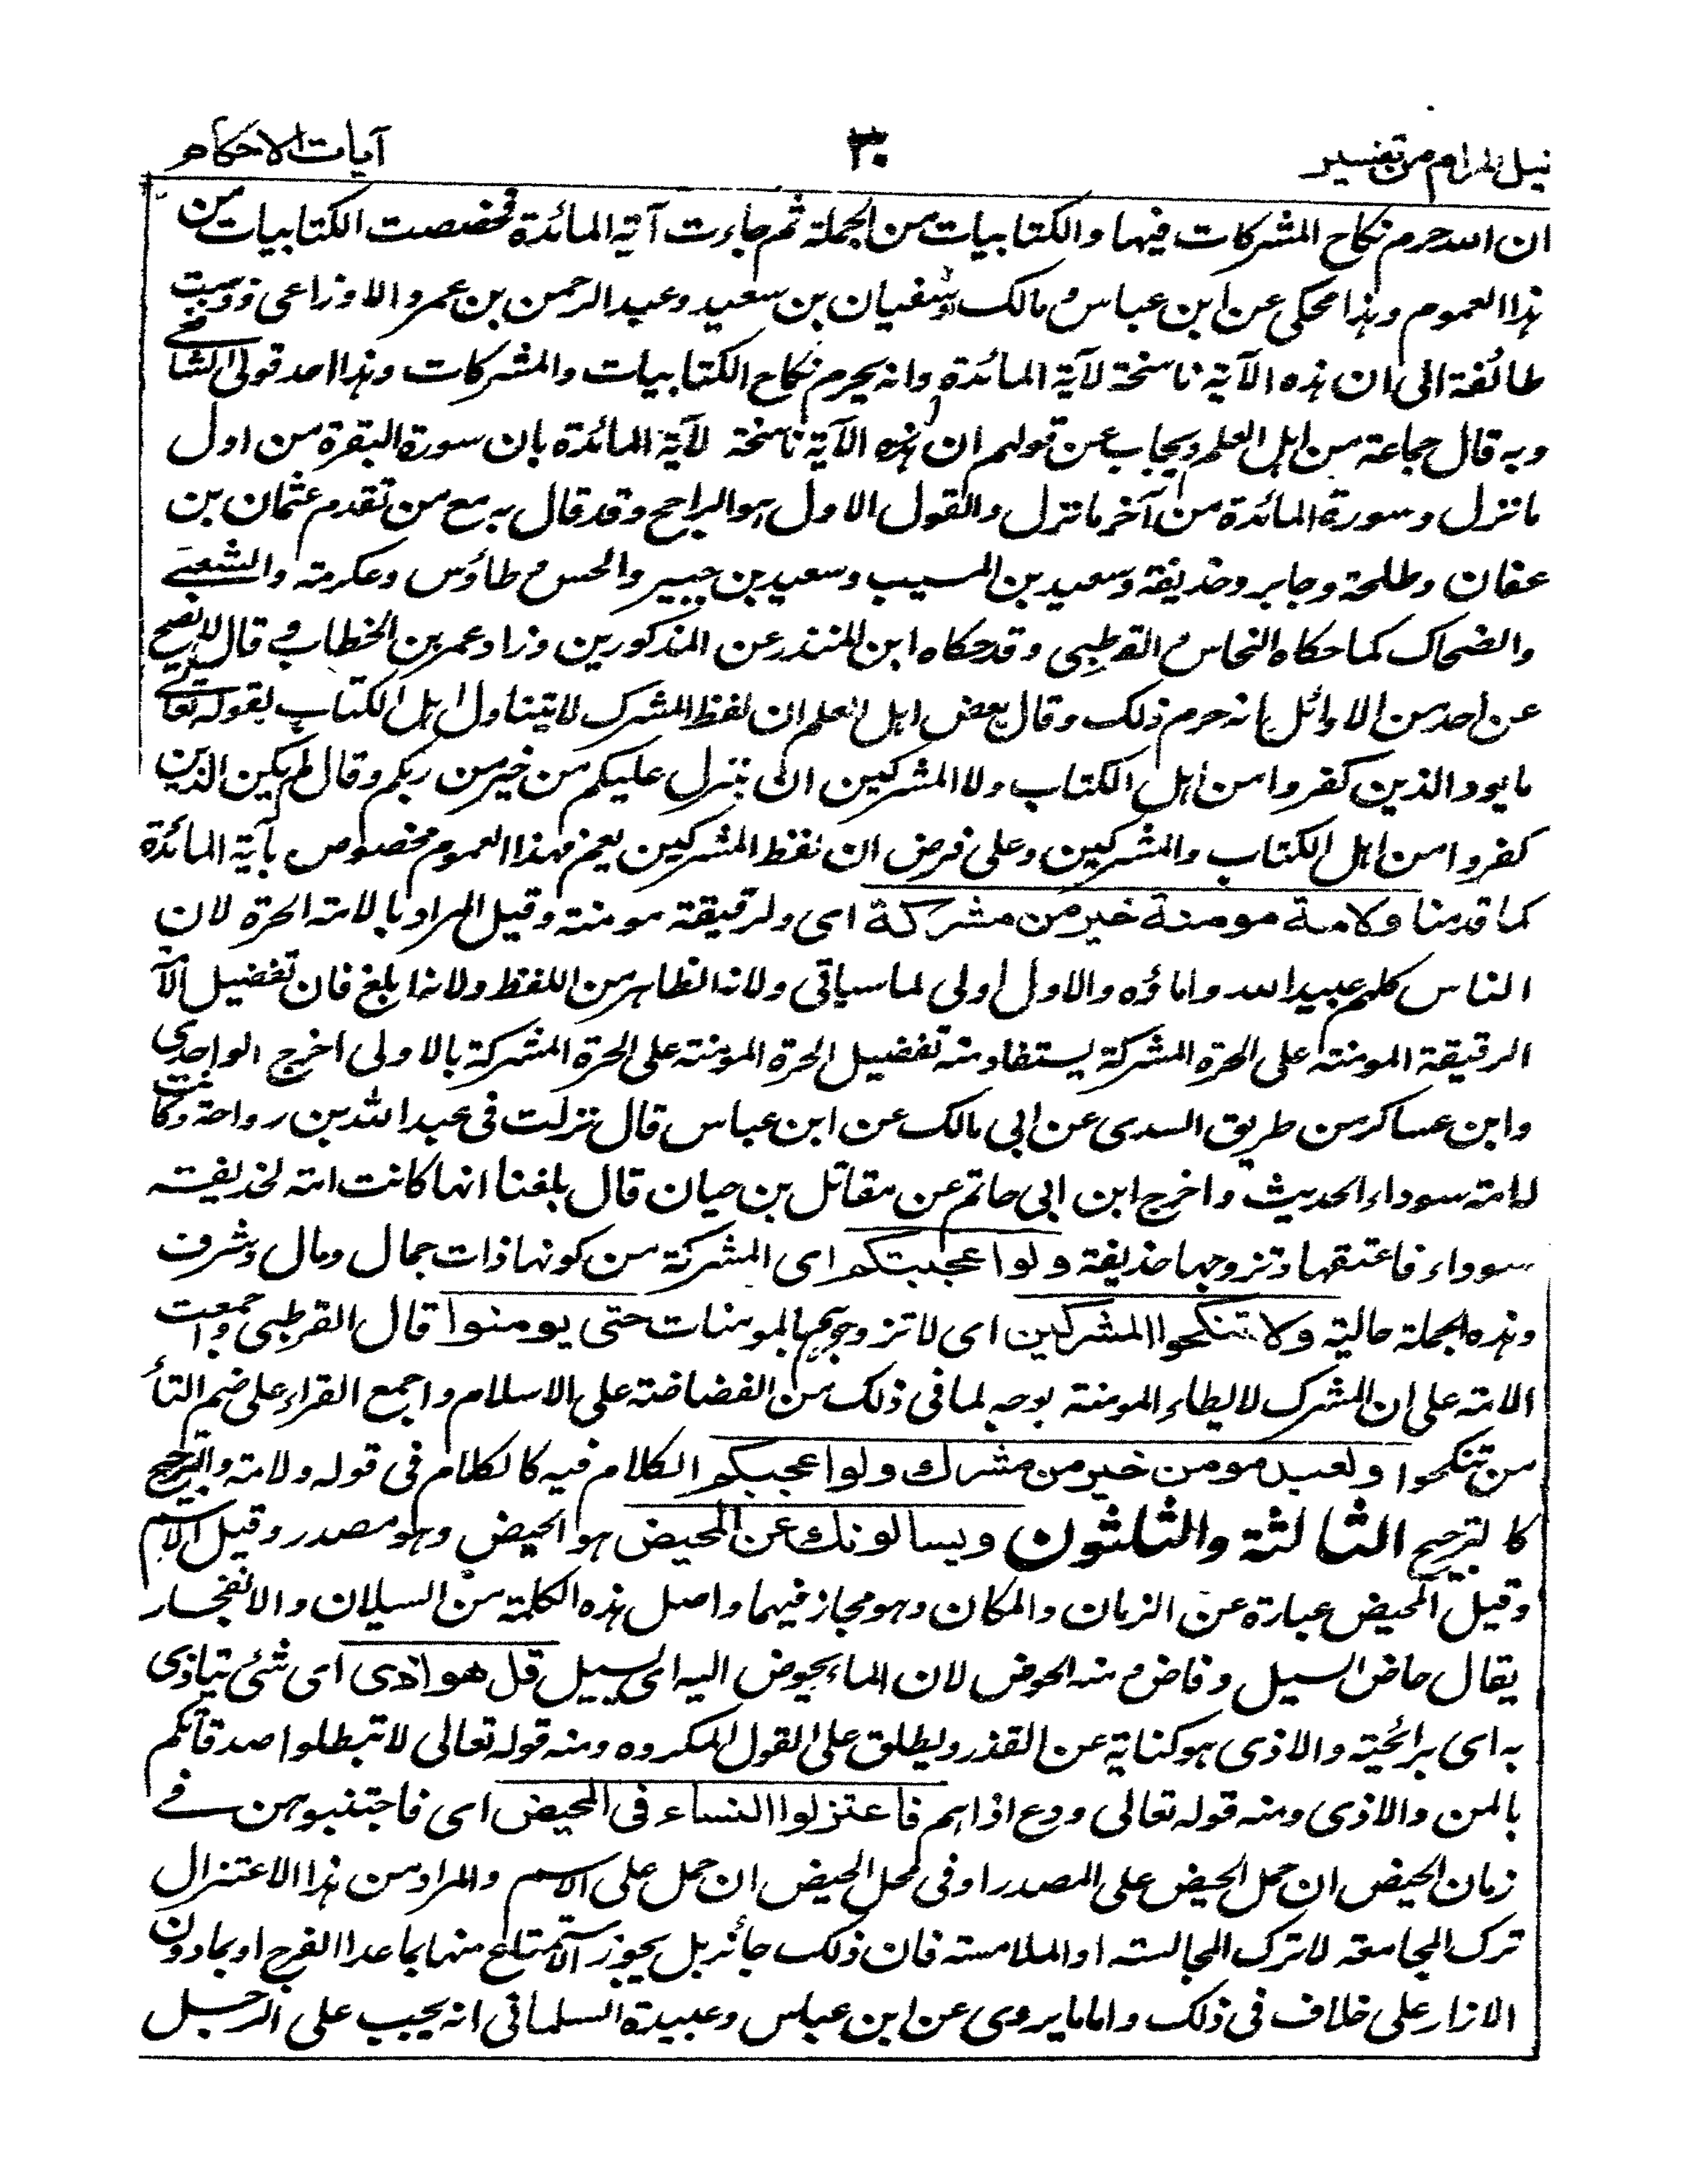 نيل المرام من تفسير
٣٠
آيات الاحكام
ان الله حرم نكاح المشركات فيها والكتابيات من الجملة ثم جاءت آية المائدة فخصصت الكتابيات من
هذا العموم وهذا محكى عن ابن عباس و مالك وسفيان بن سعيد وعبد الرحمن بن عمرو الاوزاعى وذهبت
طائفة الى ان هذه الآية ناسخة لآية المائدة وانه يحرم نكاح الكتابيات والمشركات وهذا احد قولى الشافعى
وبه قال جماعة من اهل العلم ويجاب عن قولهم ان هذه الآية ناسخة لآية المائدة بان سورة البقرة من اول
ما نزل وسورة المائدة من آخر ما نزل والقول الاول هو الراجح وقد قال به مع من تقدم عثمان بن
عفان وطلحة وجابر وحذيفة وسعيد بن المسيب وسعيد بن جبير والحسن و طاؤس وعكرمة والشعبى
والضحاك كما حكاه النحاس و القرطبى وقد حكاه ابن المنذر عن المذكورين وزاد عمر بن الخطاب و قال لا يصح
عن احد من الاوائل انه حرم ذلك وقال بعض اهل العلم ان لفظ المشرك لا يتناول اهل الكتاب لقوله تعالى
ما يود الذين كفروا من اهل الكتاب ولا المشركين ان ينزل عليكم من خير من ربكم وقال لم يكن الذين
كفروا من اهل الكتاب والمشركين وعلى فرض ان لفظ المشركين يعم فهذا العموم مخصوص بآية المائدة
كما قدمنا ولامة مومنة خير من مشركة اى ولرقيقة مومنة وقيل المراد بالامة الحرة لان
الناس كلهم عبيد الله واماؤه والاول اولى لما سياتى ولانه الظاهر من اللفظ ولانه ابلغ فان تفضيل الآ
الرقيقة المومنة على الحرة المشركة يستفاد منه تفضيل الحرة المومنة على الحرة المشركة بالاولى اخرج الواحدى
وابن عساكر من طريق السدى عن ابى مالك عن ابن عباس قال نزلت فى عبد الله بن رواحة وكانت
له امة سوداء الحديث واخرج ابن ابى حاتم عن مقاتل بن حيان قال بلغنا انها كانت امة لحذيفة
سوداء فاعتقها وتزوجها حذيفة ولو اعجبتكم اى المشركة من كونها ذات جمال ومال وشرف
وهذه الجملة حالية ولا تنكحوا المشركين اى لا تزوجوهم بالمومنات حتى يومنوا قال القرطبى واجمعت
الامة على ان المشرك لا يطاء المومنة بوجه لما فى ذلك من الغضاضة على الاسلام واجمع القراء على ضم التأ
من تنكحوا ولعبد مومن خير من مشرك ولو اعجبكم الكلام فيه كالكلام فى قوله ولامة والترجيح
كالترجيح الثالثة والثلثون ويسالونك عن المحيض هو الحيض وهو مصدر وقيل الاسم
وقيل المحيض عبارة عن الزمان والمكان وهو مجاز فيهما واصل هذه الكلمة من السيلان والانفجار
يقال حاض السيل وفاض و منه الحوض لان الماء يحوض اليه اى يسيل قل هو اذى اى شئ يتاذى
به اى برائحته والاذى هو كناية عن القذر ويطلق على القول المكروه ومنه قوله تعالى لا تبطلوا صدقاتكم
بالمن والاذى ومنه قوله تعالى ودع اذاهم فاعتزلوا النساء فى المحيض اى فاجتنبوهن فے
زمان الحيض ان حمل الحيض على المصدر او فى محل الحيض ان حمل على الاسم والمراد من هذا الاعتزال
ترك المجامعة لا ترك المجالسة او الملامسة فان ذلك جائز بل يجوز الاستمتاع منها بما عدا الفرج او بما دون
الازار على خلاف فى ذلك واما ما يروى عن ابن عباس وعبيدة السلمانى انه يجب على الرجل